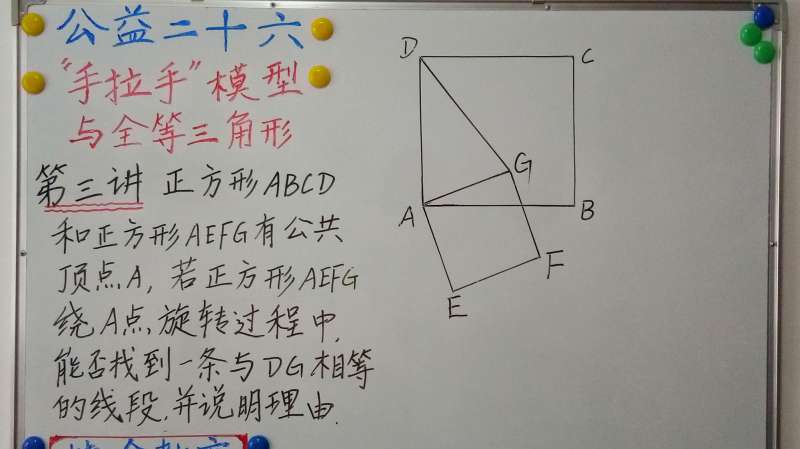 公益二十六
"手拉手"模型
与全等三角形
第三讲 正方形ABCD
和正方形AEFG有公共
顶点A,若正方形AEFG
绕A点旋转过程中,
能否找到一条与DG相等
的线段,并说明理由.
D
C
G
A
B
F
E